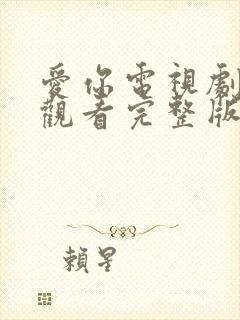 愛你電視劇
觀看完整版
賴星